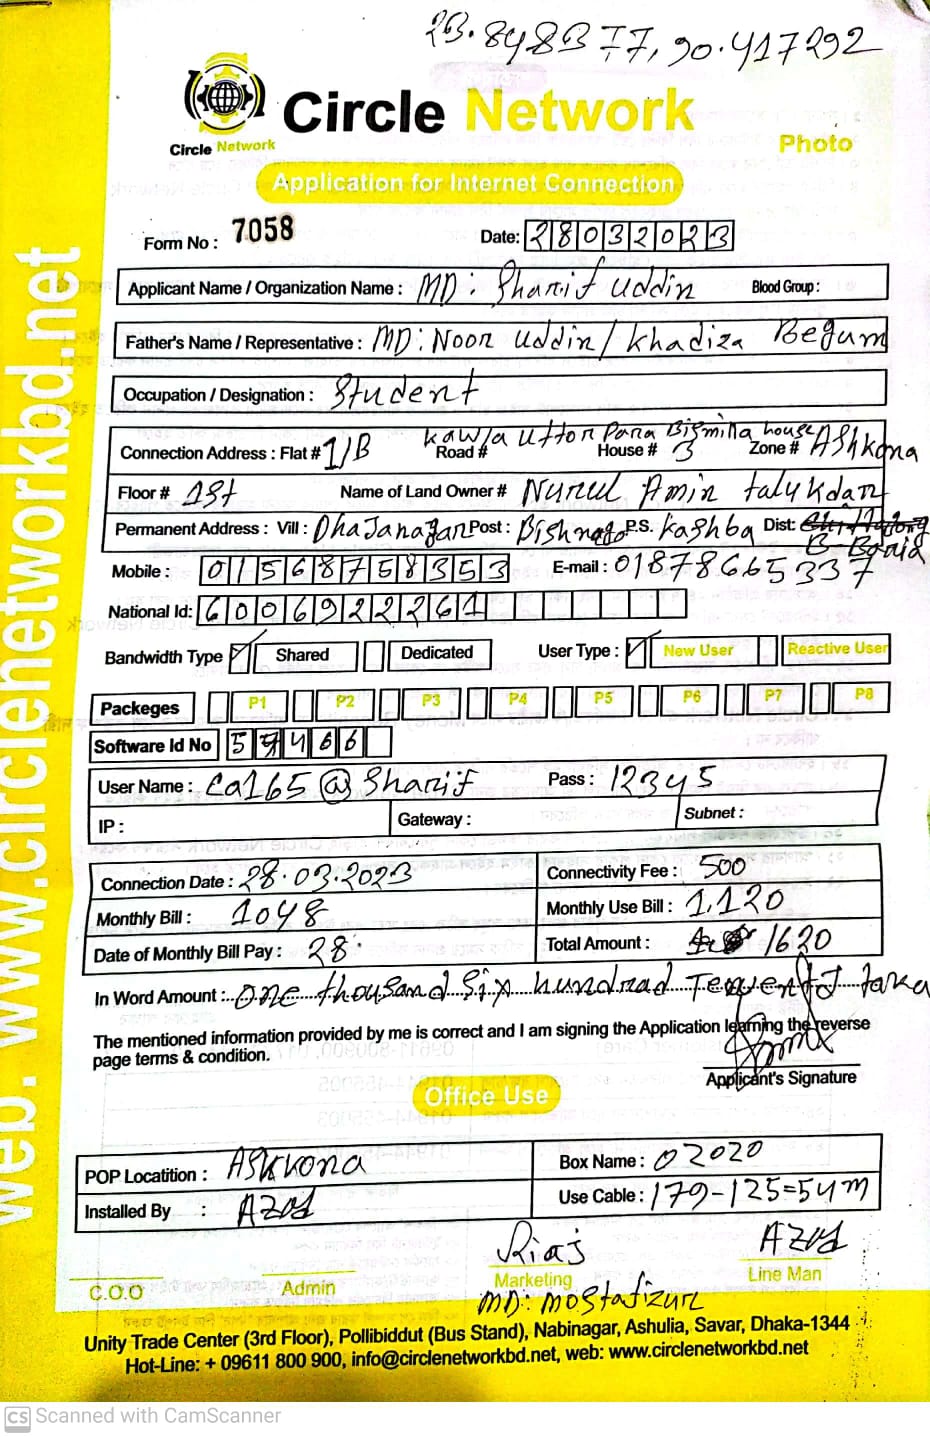 23.848377, 90.417292
Circle Network
Circle Network
Photo
Application for Internet Connection
Form No : 7058
Date: 28032023
Applicant Name / Organization Name : MD : Sharif uddin Blood Group :
Father's Name / Representative : MD: Noor uddin / Khadiza Begum
Occupation / Designation : Student
Connection Address : Flat # 1/B Road # Kawla uttor Para Bismilla house House # 3 Zone # Ashkona
Floor # 1St Name of Land Owner # Nurul Amin talukdar
Permanent Address : Vill : Dhajanagar Post : P.S. Kashba Dist: B-Baria
Mobile : 01568758353 E-mail : 01878665337
National Id: 6006922261
Bandwidth Type Shared Dedicated User Type : New User Reactive User
Packeges P1 P2 P3 P4 P5 P6 P7 P8
Software Id No 57466
User Name : Ca165@Sharif Pass : 12345
IP : Gateway : Subnet :
Connection Date : 28.03.2023 Connectivity Fee : 500
Monthly Bill : 1048 Monthly Use Bill : 1,120
Date of Monthly Bill Pay : 28 Total Amount : 1620
In Word Amount : one thousand Six hundrad Tewenty taka
The mentioned information provided by me is correct and I am signing the Application learning the reverse
page terms & condition.
Applicant's Signature
Office Use
POP Locatition : ASkkona Box Name : 02020
Installed By : Azad Use Cable : 179-125=54m
Riaj Azad
C.O.O Admin Marketing Line Man
MD: Mostafizur
Unity Trade Center (3rd Floor), Pollibiddut (Bus Stand), Nabinagar, Ashulia, Savar, Dhaka-1344
Hot-Line: + 09611 800 900, info@circlenetworkbd.net, web: www.circlenetworkbd.net
web: www.circlenetworkbd.net
CS Scanned with CamScanner